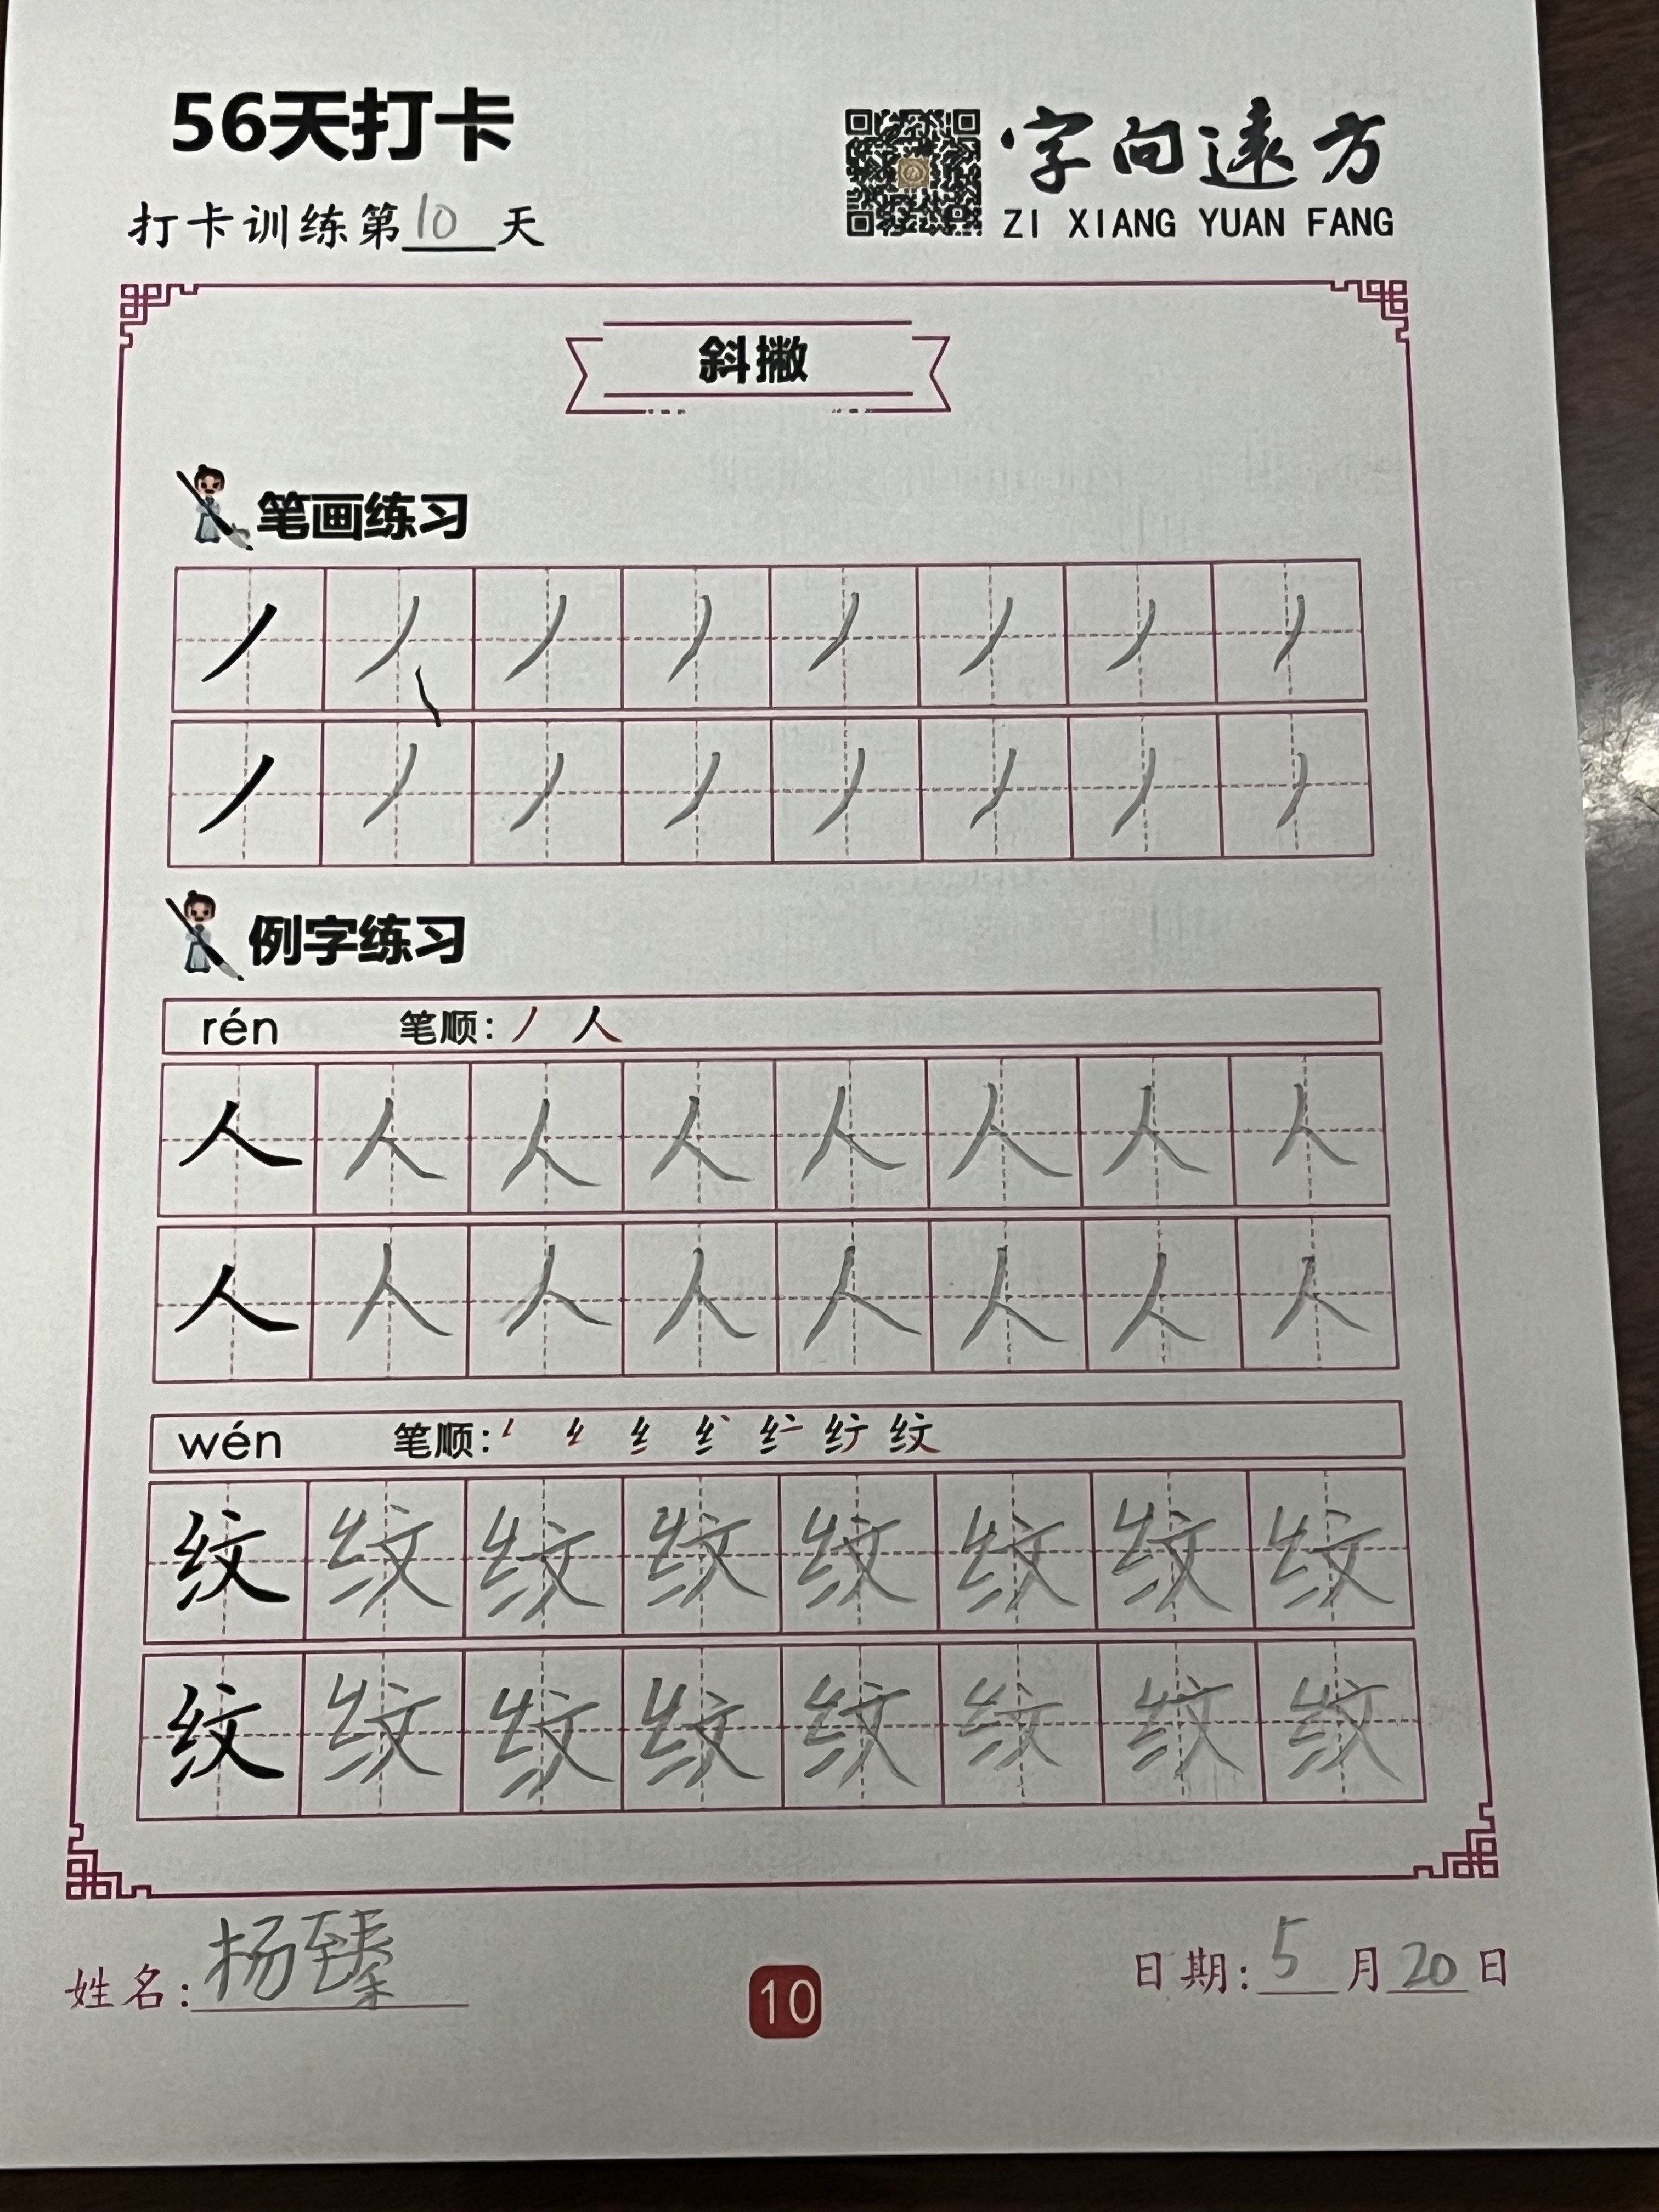 56天打卡
字向远方
打卡训练第10天
ZI XIANG YUAN FANG
斜撇
笔画练习
丿 丿 丿 丿 丿 丿 丿 丿
丿 丿 丿 丿 丿 丿 丿 丿
例字练习
rén 笔顺: 丿 人
人 人 人 人 人 人 人 人
人 人 人 人 人 人 人 人
wén 笔顺: 纹
纹 纹 纹 纹 纹 纹 纹 纹
纹 纹 纹 纹 纹 纹 纹 纹
姓名:杨臻
10
日期:5月20日